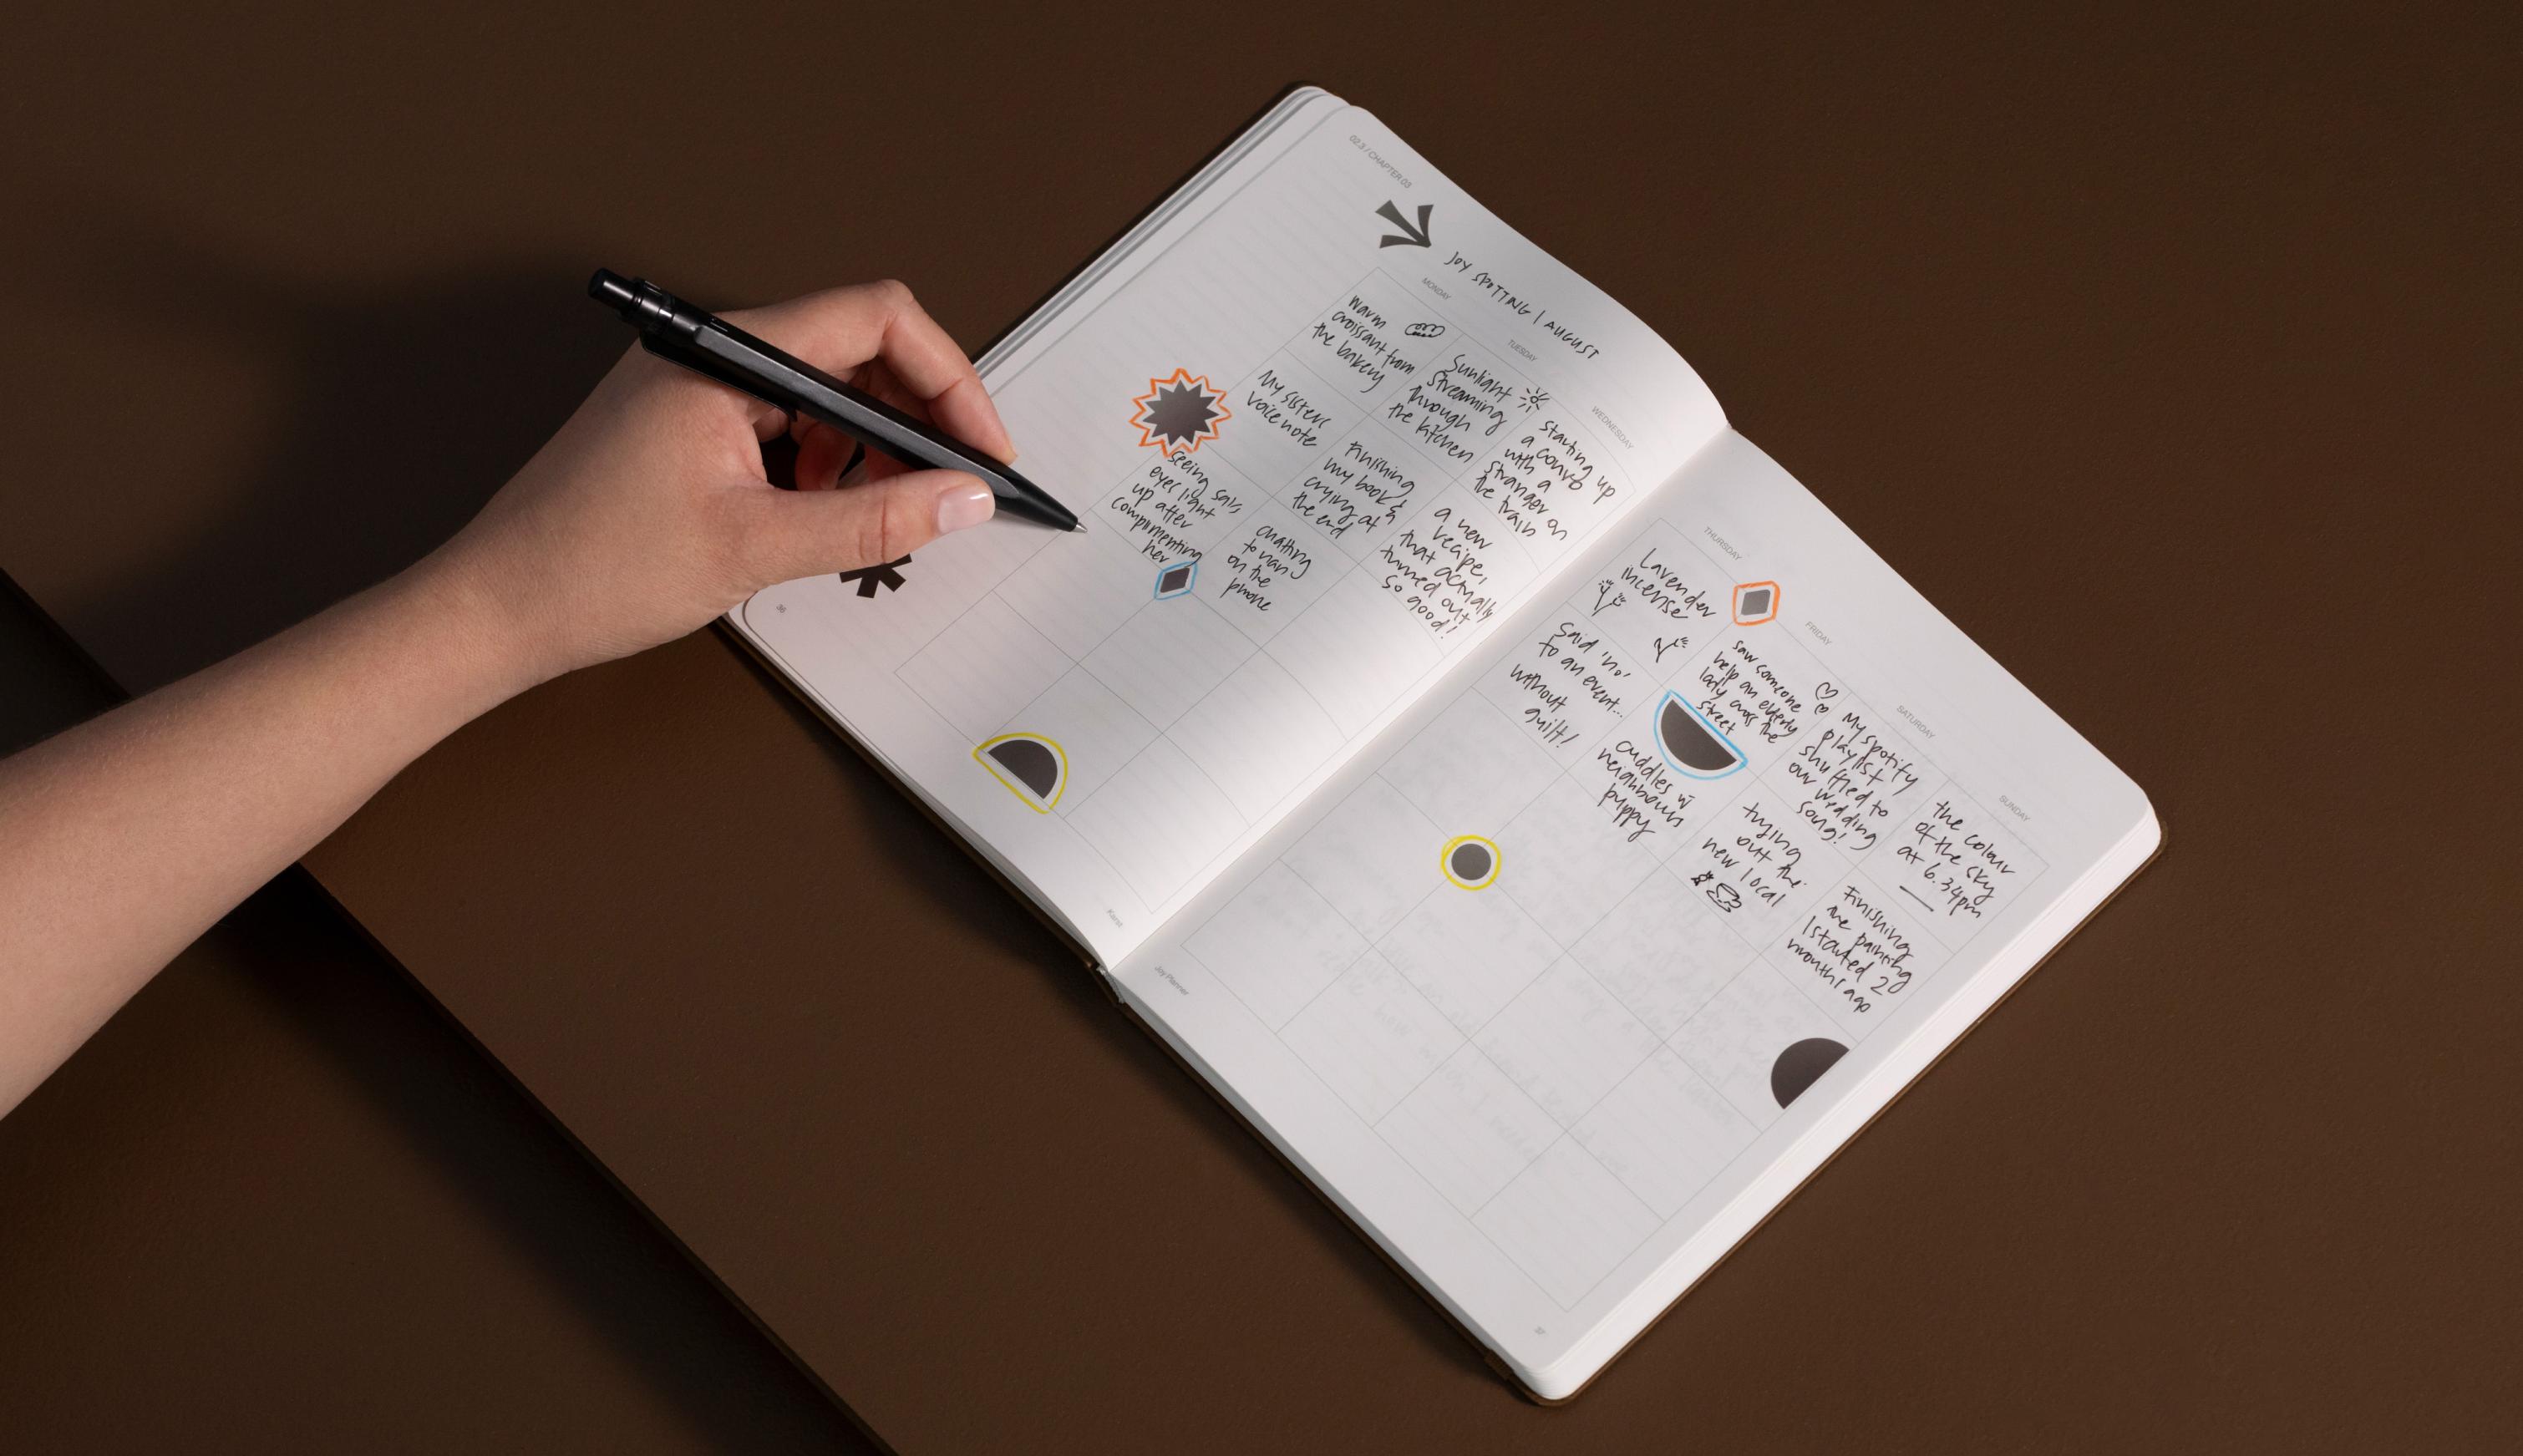 02.3 / CHAPTER 03
JOY SPOTTING | AUGUST
MONDAY
TUESDAY
WEDNESDAY
warm
croissant from
the bakery
Sunlight
streaming
through
the kitchen
Starting up
a convo
with a
stranger on
the train
My sisters
voice note
Finishing
my book &
crying at
the end
a new
recipe,
that actually
turned out
so good!
seeing
eyes light
up after
complimenting
her
chatting
to
on the
phone
36
Karst
THURSDAY
FRIDAY
SATURDAY
SUNDAY
Lavender
incense
saw someone
help an elderly
lady cross the
street
My spotify
playlist
shuffled to
our wedding
song!
the colour
of the sky
at 6.34pm
Said 'no'
to an event...
without
guilt!
cuddles w
neighbours
puppy
trying
out the
new local
Finishing
the painting
I started 2
months ago
Joy Planner
37